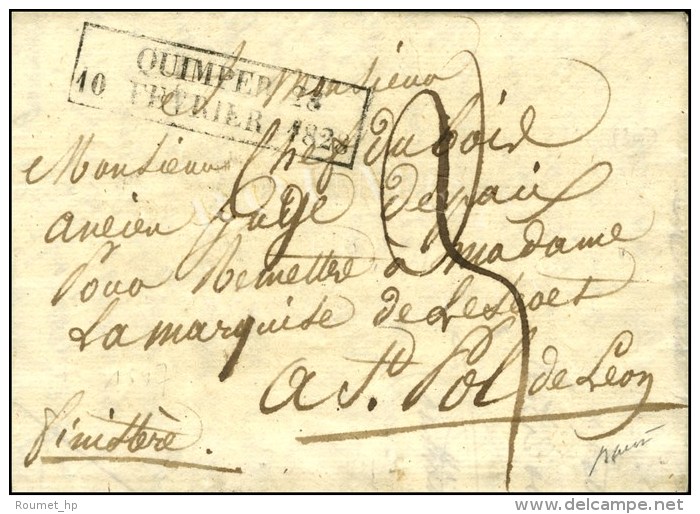 QUIMPER 28
10 FEVRIER 1828
A Monsieur
Monsieur Chef duBois
ancien Juge depaix
Pour Remettre à madame
La marquise de Lescoet
a St. Pol de Léon
finistère.
Roumet_hp
delcampe.net